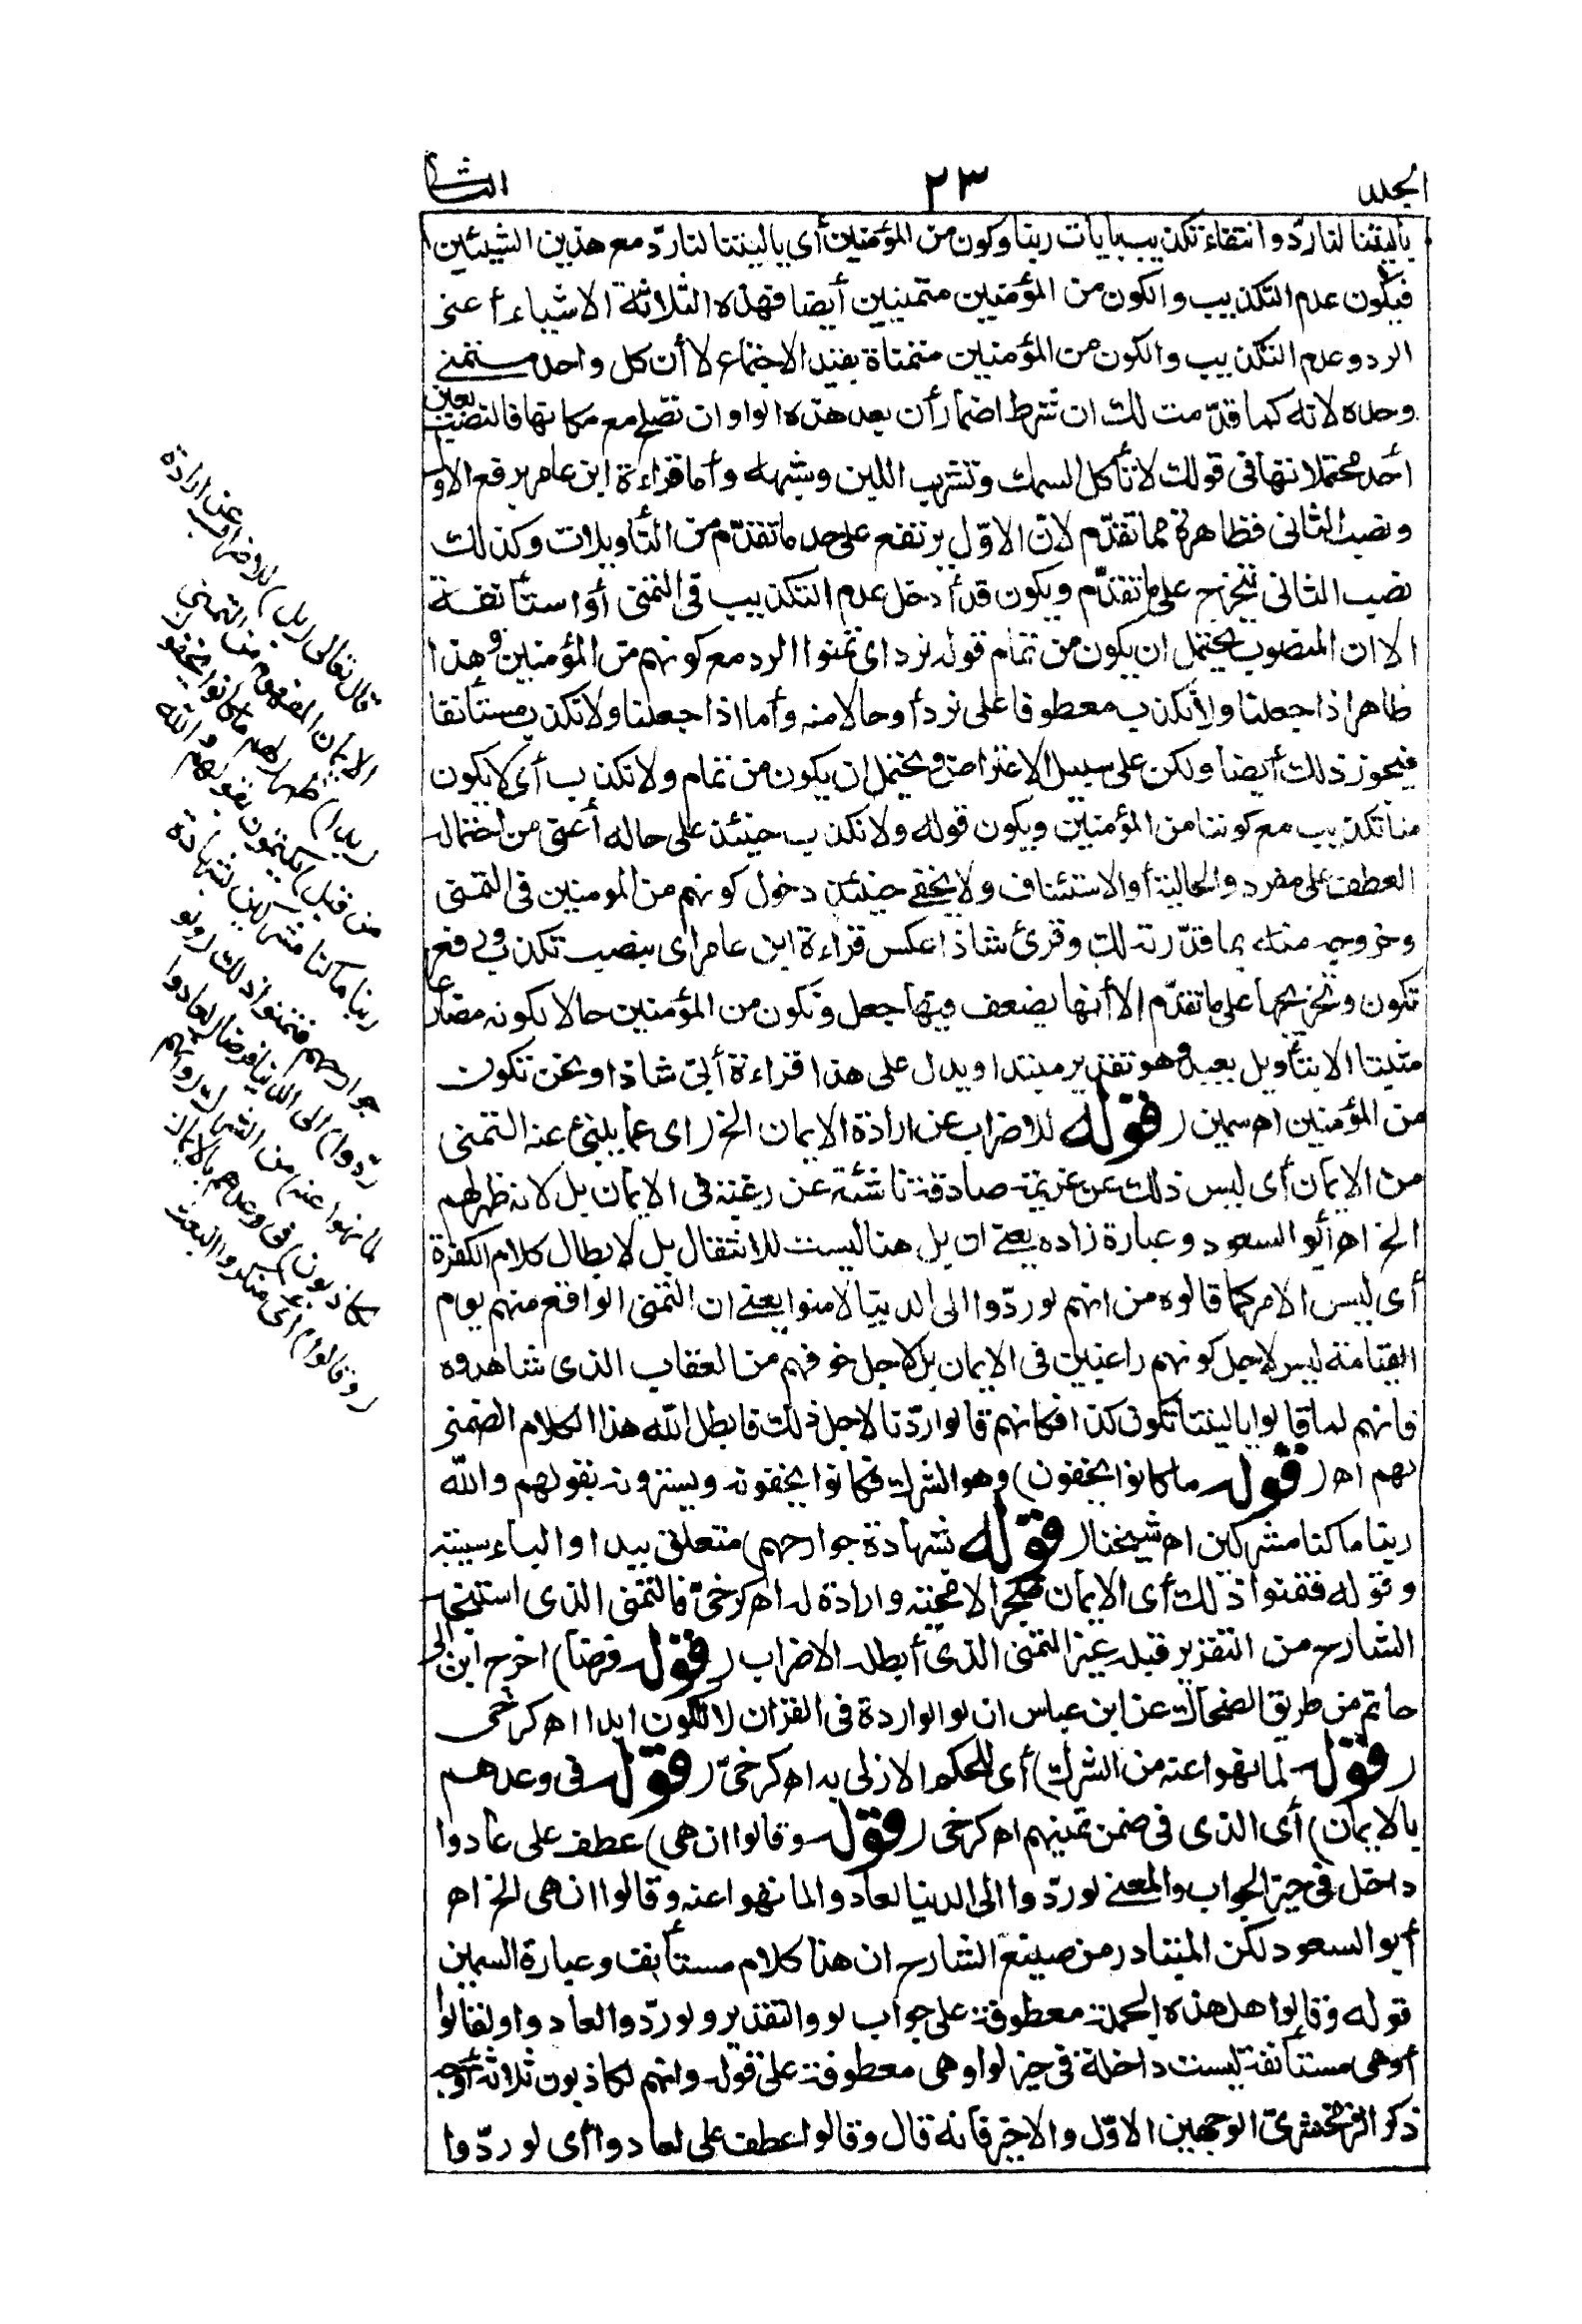 الجلد
٢٣
الثانى
ياليتنا لنا ردّ وانتفاء تكذيب بآيات ربنا وكون من المؤمنين أى ياليتنا لنا ردّ مع هذين الشيئين
فيكون عدم التكذيب والكون من المؤمنين متمنيين أيضا فهذه الثلاثة الاشياء أعنى
الرد وعدم التكذيب والكون من المؤمنين متمناة بقيد الاجتماع لا أن كل واحد متمنى
وحده لانه كما قدّمت لك ان شرط اضمار أن بعد هذه الواو ان تصلح مع مكانها فالنصب يعين
أحد محتملاتها فى قولك لا تأكل السمك وتشرب اللبن وشبهه وأما قراءة ابن عامر برفع الاول
ونصب الثانى فظاهرة مما تقدّم لانّ الاوّل يرتفع على حد ما تقدّم من التأويلات وكذلك
نصب الثانى يتخرج على ما تقدّم ويكون قد أدخل عدم التكذيب فى التمنى أو استأنفه
الا ان المنصوب يحتمل ان يكون من تمام قوله نرد اى تمنوا الرد مع كونهم من المؤمنين وهذا
ظاهر اذا جعلنا ولا نكذب معطوفا على نرد أو حالا منه وأما اذا جعلنا ولا نكذب مستأنفا
فيجوز ذلك أيضا ولكن على سبيل الاعتراض ويحتمل ان يكون من تمام ولا نكذب أى لا يكون
منا تكذيب مع كوننا من المؤمنين ويكون قوله ولا نكذب حينئذ على حاله أعنى من احتماله
العطف على مفرد والحالية أو الاستئناف ولا يخفى حينئذ دخول كونهم من المومنين فى التمنى
وخروجه منه بما قدّرته لك وقرئ شاذا عكس قراءة ابن عامر اى بنصب نكذب ورفع
نكون وتخريجها على ما تقدّم الا أنها يضعف فيها جعل ونكون من المؤمنين حالا لكونه مضارعا
مثبتا الا بتأويل بعيد وهو تقدير مبتدا ويدل على هذا قراءة أبىّ شاذا ونحن نكون
من المؤمنين اه سمين (قوله للاضراب عن ارادة الايمان الخ) اى عما ينبئ عنه التمنى
من الايمان أى ليس ذلك عن عزيمة صادقة ناشئة عن رغبة فى الايمان بل لانه ظهر لهم
الخ اه أبو السعود وعبارة زاده يعنى ان بل هنا ليست للانتقال بل لابطال كلام الكفرة
أى ليس الامر كما قالوه من انهم لو ردّوا الى الدنيا لامنوا يعنى ان التمنى الواقع منهم يوم
القيامة ليس لاجل كونهم راغبين فى الايمان بل لاجل خوفهم من العقاب الذى شاهدوه
فانهم لما قالوا ياليتنا نكون كذا فكانهم قالوا ردّنا لاجل ذلك فابطل الله هذا الكلام الضمنى
لهم اه (قوله ما كانوا يخفون) وهو الشرك فكانوا يخفونه ويسترونه بقولهم والله
ربنا ما كنا مشركين اه شيخنا (قوله بشهادة جوارحهم) متعلق ببدا والباء سببية
وقوله فتمنوا ذلك أى الايمان ضجرا لا محبة وارادة له اه كرخىّ فالتمنى الذى استنبطه
الشارح من التقدير قبله غير التمنى الذى أبطله الاضراب (قوله فرضا) اخرج ابن ابى
حاتم من طريق الضحاك عن ابن عباس ان لو الواردة فى القران لا تكون ابدا اه كرخى
(قوله لما نهوا عنه من الشرك) أى للحكم الازلى به اه كرخىّ (قوله فى وعدهم
بالايمان) أى الذى فى ضمن تمنيهم اه كرخى (قوله وقالوا ان هى) عطف على عادوا
داخل فى حيز الجواب والمعنى لو ردّوا الى الدنيا لعادوا لما نهوا عنه وقالوا ان هى الخ اه
أبو السعود لكن المتبادر من صنيع الشارح ان هذا كلام مستأنف وعبارة السمين
قوله وقالوا هل هذه الجملة معطوفة على جواب لو والتقدير ولو ردّوا لعادوا ولقالوا
أو هى مستأنفة ليست داخلة فى حيز لو او هى معطوفة على قوله وانهم لكاذبون ثلاثة أوجه
ذكر الزمخشرىّ الوجهين الاوّل والاخير فانه قال وقالوا عطف على لعادوا أى لو ردّوا
قال تعالى (بل) للاضراب عن ارادة
الايمان المفهوم من التمنى
(بدا) ظهر (لهم ما كانوا يخفون
من قبل) يكتمون بقولهم والله
ربنا ما كنا مشركين بشهادة
جوارحهم فتمنوا ذلك (ولو
ردّوا) الى الدنيا فرضا (لعادوا
لما نهوا عنه) من الشرك (وانهم
لكاذبون) فى وعدهم بالايمان
(وقالوا) أى منكروا البعث